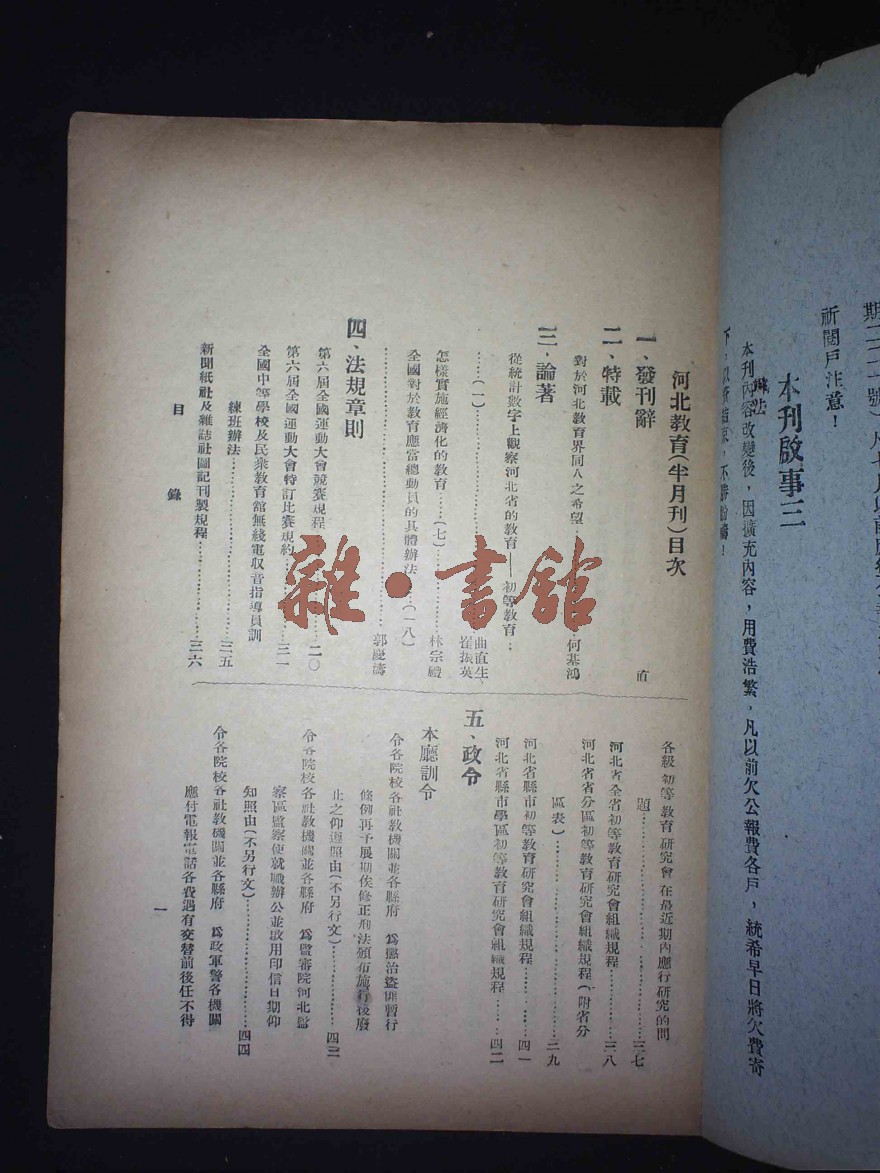 河北教育(半月刊)目次
一、發刊辭
二、特載
對於河北教育界同人之希望
何基鴻
三、論著
從統計數字上觀察河北省的教育——初等教育：
…………(一)…………曲直生
崔振英
怎樣實施經濟化的教育……(七)……林宗禮
全國對於教育應當總動員的具體辦法……(一八)
…………郭慶濤
四、法規章則
第六屆全國運動大會競賽規程…………二〇
第六屆全國運動大會特訂比賽規約…………三一
全國中等學校及民衆教育館無綫電收音指導員訓
練班辦法…………三五
新聞紙社及雜誌社圖記刊製規程…………三六
目 錄
各級初等教育研究會在最近期內應行研究的問
題…………三七
河北省全省初等教育研究會組織規程…………三八
河北省省分區初等教育研究會組織規程(附省分
區表)…………三九
河北省縣市初等教育研究會組織規程…………四一
河北省縣市學區初等教育研究會組織規程……四二
五、政令
本廳訓令
令各院校各社教機關並各縣府 爲懲治盜匪暫行
條例再予展期俟修正刑法頒布施行後廢
止之仰遵照由(不另行文)…………四三
令各院校各社教機關並各縣府 爲監審院河北監
察區監察使就職辦公並啟用印信日期仰
知照由(不另行文)…………四四
令各院校各社教機關並各縣府 爲政軍警各機關
應付電報電話各費遇有交替前後任不得
一
雜·書館
祈閱戶注意！
本刊啟事三
本刊內容改變後，因擴充內容，用費浩繁，凡以前欠公報費各戶，統希早日將欠費寄